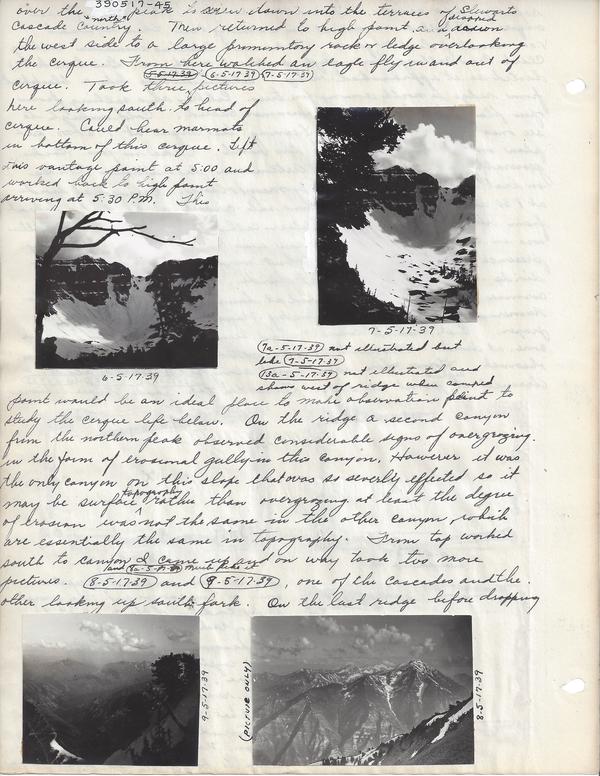 390517-A5
over the north peak to view down into the terraces of Stewarts
Cascade Country. Then returned to high point, and dropped down
the west side to a large promontory rock or ledge overlooking
the cirque. From here watched an eagle fly in and out of
5-5-17-39 6-5-17-39 7-5-17-39
cirque. Took three pictures
here looking south to head of
cirque. Could hear marmots
in bottom of this cirque. Left
this vantage point at 5:00 and
worked back to high point
arriving at 5:30 P.M. This
7-5-17-39
6-5-17-39
7a-5-17-39 not illustrated but
like 7-5-17-39
13a-5-17-39 not illustrated and
shows west of ridge when compared
point would be an ideal place to make observation point to
study the cirque life below. On the ridge a second canyon
from the northern peak observed considerable signs of overgrozing.
in the form of erosional gully in this canyon. However it was
the only canyon on this slope that was so severly effected so it
may be surface topography rather than overgrozing at least the degree
of erosion was not the same in the other canyon, which
are essentially the same in topography. From top worked
south to canyon I came up and on way took two more
and 8a-5-17-39 much like it
pictures. 8-5-17-39 and 9-5-17-39, one of the cascades and the
other looking up south fork. On the last ridge before dropping
9-5-17-39
(PICTURE ONLY)
8-5-17-39